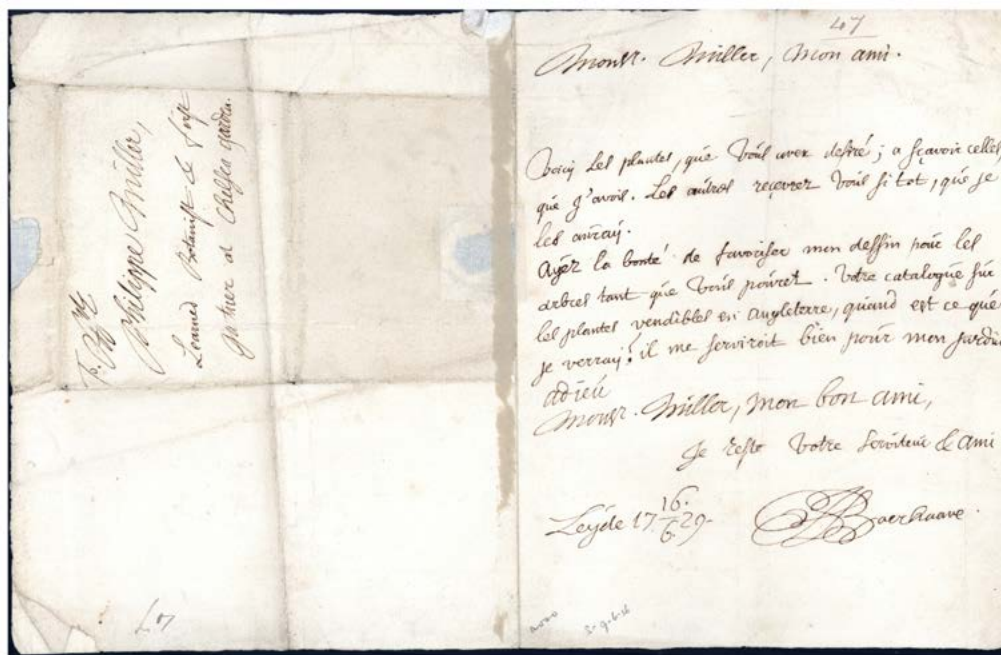 Philippe Miller,
Learned Botanist & first
gartner at Chelsea garden.
47
47
Monsr. Miller, Mon ami.
Voicy les plantes, que Vous avez desiré; a sçavoir celles,
que j'avois. Les autres recevrez Vous si tot, que je
les auray.
Ayez la bonté de favoriser mon dessin pour les
arbres tant que Vous pouvez. Votre catalogue sur
les plantes vendibles en Angleterre, quand est ce que
je verray? il me serviroit bien pour mon jardin
adieu
Monsr. Miller, mon bon ami,
Je reste Votre serviteur & ami
Leyde 17 16./6. 29.
HBoerhaave.